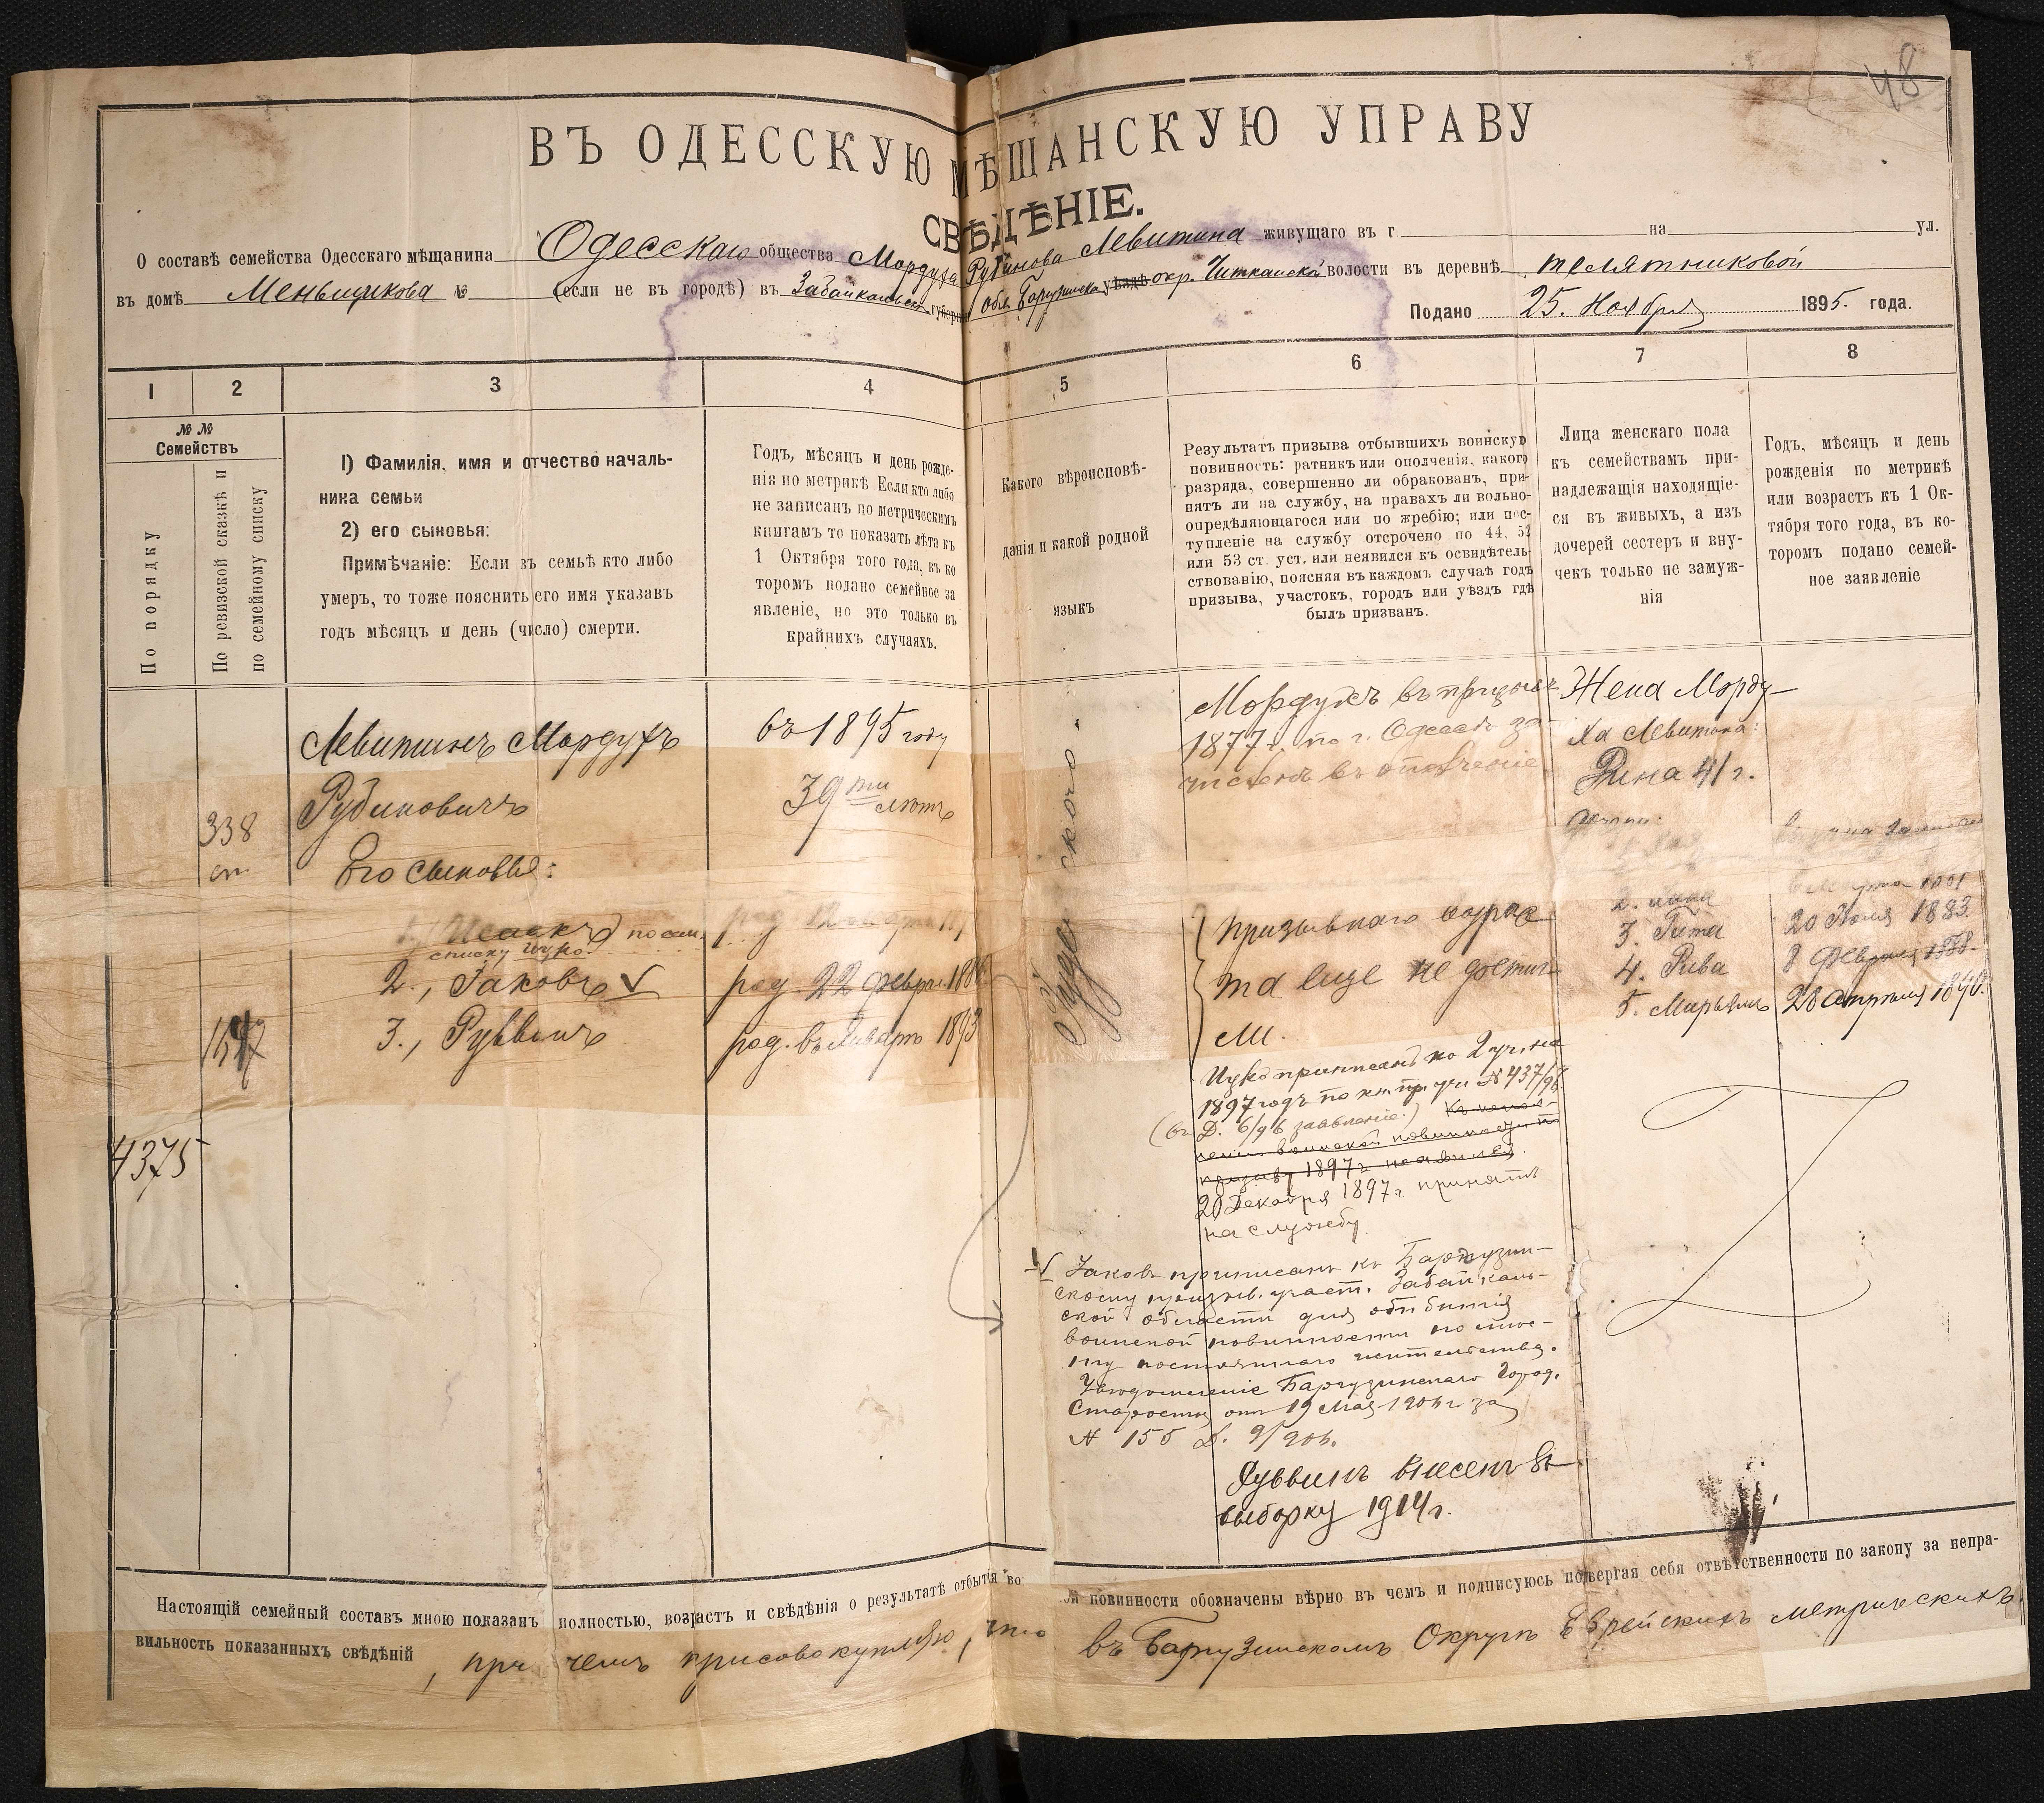 48
ВЪ ОДЕССКУЮ МѢЩАНСКУЮ УПРАВУ
СВѢДѢНІЕ.
О составѣ семейства Одесскаго мѣщанина Одесскаго общества Мордуха Рубинова Левитина живущаго въ г на ул.
въ домѣ Меньщикова № (если не въ городѣ) въ Забайкальск. губерніи обл. Баргузинска уѣздѣ окр. Читканской волости въ деревнѣ телятниковой
Подано 25. Ноября 1895. года.
1 2 3 4 5 6 7 8
№№
Семействъ
По порядку
По ревизской сказкѣ и
по семейному списку
1) Фамилія, имя и отчество началь-
ника семьи
2) его сыновья:
Примѣчаніе: Если въ семьѣ кто либо
умеръ, то тоже пояснить его имя указавъ
годъ мѣсяцъ и день (число) смерти.
Годъ, мѣсяцъ и день рожде-
нія по метрикѣ Если кто либо
не записанъ по метрическимъ
книгамъ то показать лѣта къ
1 Октября того года, въ ко
торомъ подано семейное за
явленіе, но это только въ
крайнихъ случаяхъ.
Какого вѣроисповѣ-
данія и какой родной
языкъ
Результатъ призыва отбывшихъ воинскую
повинность: ратникъ или ополченія, какого
разряда, совершенно ли обракованъ, при-
нятъ ли на службу, на правахъ ли вольно-
опредѣляющагося или по жребію; или пос-
тупленіе на службу отсрочено по 44, 52
или 53 ст. уст. или неявился къ освидѣтель-
ствованію, поясняя въ каждомъ случаѣ годъ
призыва, участокъ, городъ или уѣздъ гдѣ
былъ призванъ.
Лица женскаго пола
къ семействамъ при-
надлежащія находящіе-
ся въ живыхъ, а изъ
дочерей сестеръ и вну-
чекъ только не замуж-
нія
Годъ, мѣсяцъ и день
рожденія по метрикѣ
или возрастъ къ 1 Ок-
тября того года, въ ко-
торомъ подано семей-
ное заявленіе
338
4375
Левитинъ Мордухъ
Рубиновичъ
Его сыновья:
1. Исаакъ по сем.
списку Ицко
2., Іаковъ
3., Руввинъ
въ 1895 году
39ти лѣтъ
род. 22 Февра. 188
род. въ Январѣ 1893
Мордухъ въ призывѣ
1877 г. по г. Одессѣ за-
численъ въ ополченіе
Призывнаго возрас
та еще не достиг
ли.
Ицко приписанъ ко 2 уч. на
1897 годъ по кн. при уч. № 437/96
(въ Д. 6/96 заявленіе.) Къ испол-
ненію воинской повинности по
призыву 1897 г. не явился.
20 Декабря 1897 г. принятъ
на службу.
Іаковъ приписанъ къ Баргузин-
скому призыв. участ. Забайкаль-
ской области для отбытія
воинской повинности по мѣс-
ту постояннаго жительства.
Увѣдомленіе Баргузинскаго Город.
Старосты отъ 19 Мая 190 г. за
№ 155 Д. 9/90
Руввинъ внесенъ въ
выборку 1914 г.
Жена Морду-
ха Левитина:
Рина 41 г.
дочери:
3. Гита 20 Іюля 1883.
4. Рива 8 Февраля 1888.
5. Мирьямъ 28 Апрѣля 1890.
Настоящій семейный составъ мною показанъ полностью, возрастъ и свѣдѣнія о результатѣ отбытія во повинности обозначены вѣрно въ чемъ и подписуюсь подвергая себя отвѣтственности по закону за непра-
вильность показанныхъ свѣдѣній, при чемъ присовокупляю, что въ Баргузинскомъ Округѣ Еврейскихъ метрическихъ